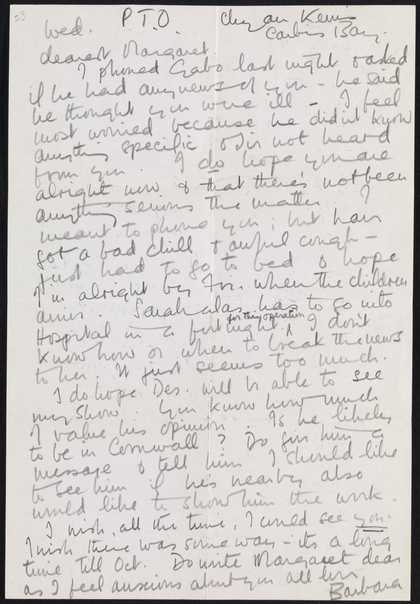 23
Wed. P.T.O. Chy an Kerris
Carbis Bay.
dearest Margaret
I phoned Gabo last night & asked
if he had any news of you – he said
he thought you were ill – I feel
most worried because he didn't know
anything specific & I'd not heard
from you. I do hope you are
alright now & that there's not been
anything serious the matter. I
meant to phone you, but have
got a bad chill & awful cough –
just had to go to bed & hope
I'm alright by Fri. when the children
arrive. Sarah alas has to go into
Hospital in a fortnight for this operation. I don't
know how or when to break the news
to her. It just seems too much.
I do hope Des. will be able to see
my show. You know how much
I value his opinion. Is he likely
to be in Cornwall? Do give him a
message & tell him I should like
to see him if he's nearby also
would like to show him the work.
I wish, all the time, I could see you.
I wish there was some way – its a long
time till Oct. Do write Margaret dear
as I feel anxious about you all love
Barbara